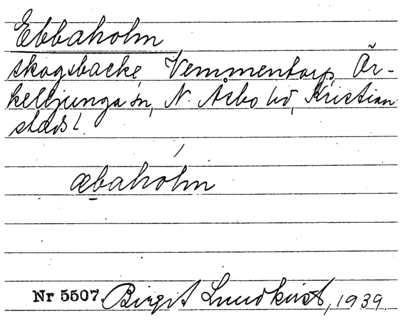 Ebbaholm
skogsbacke, Vemmentorp, Ör-
kelljunga sn, N. Åsbo hd, Kristian
stads l.
æbahólm
Nr 5507 Birgit Lundkvist, 1939